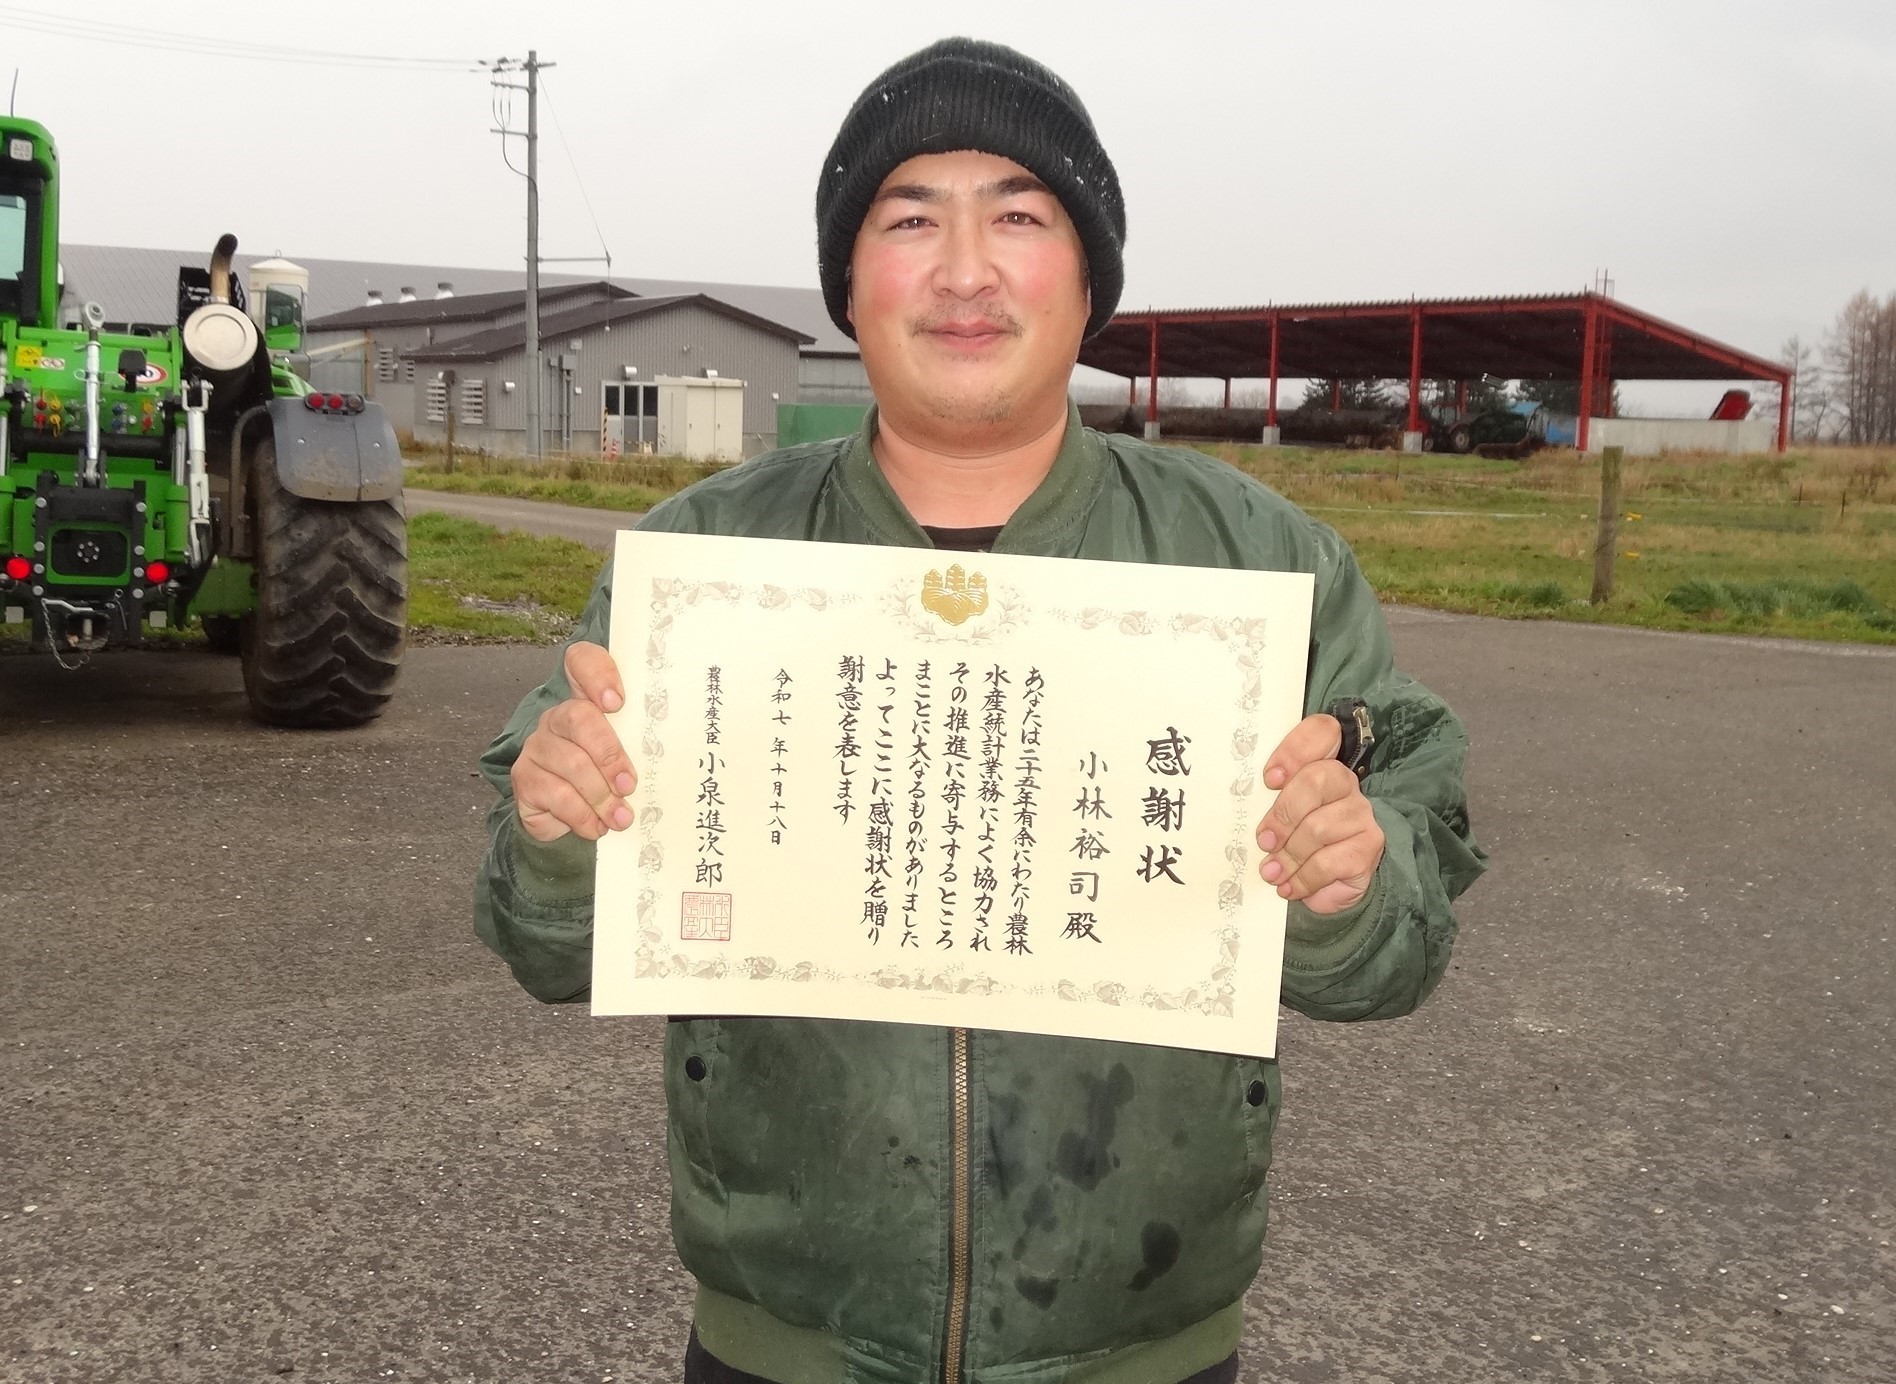 感謝状
小林裕司殿
あなたは二十五年有余にわたり農林
水産統計業務によく協力され
その推進に寄与するところ
まことに大なるものがありました
よってここに感謝状を贈り
謝意を表します
令和七年十月十八日
農林水産大臣 小泉進次郎